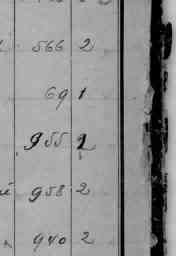 566 2
69 1
955 2
958 2
940 2